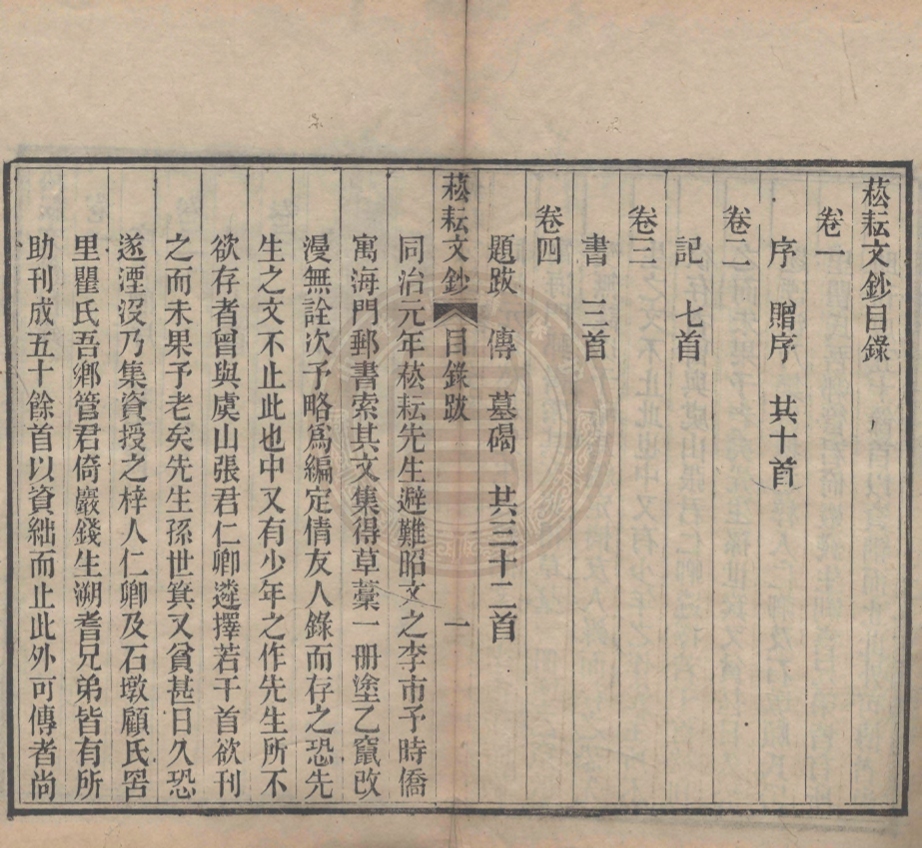 菘耘文鈔目錄
卷一
序 贈序 共十首
卷二
記 七首
卷三
書 三首
卷四
題跋 傳 墓碣 共三十二首
菘耘文鈔 目錄跋 一
同治元年菘耘先生避難昭文之李市予時僑
寓海門郵書索其文集得草藁一冊塗乙竄改
漫無詮次予略爲編定倩友人錄而存之恐先
生之文不止此也中又有少年之作先生所不
欲存者曾與虞山張君仁卿遴擇若干首欲刊
之而未果予老矣先生孫世箕又貧甚日久恐
遂湮沒乃集資授之梓人仁卿及石墩顧氏罟
里瞿氏吾鄉管君倚巖錢生溯耆兄弟皆有所
助刊成五十餘首以資絀而止此外可傳者尚